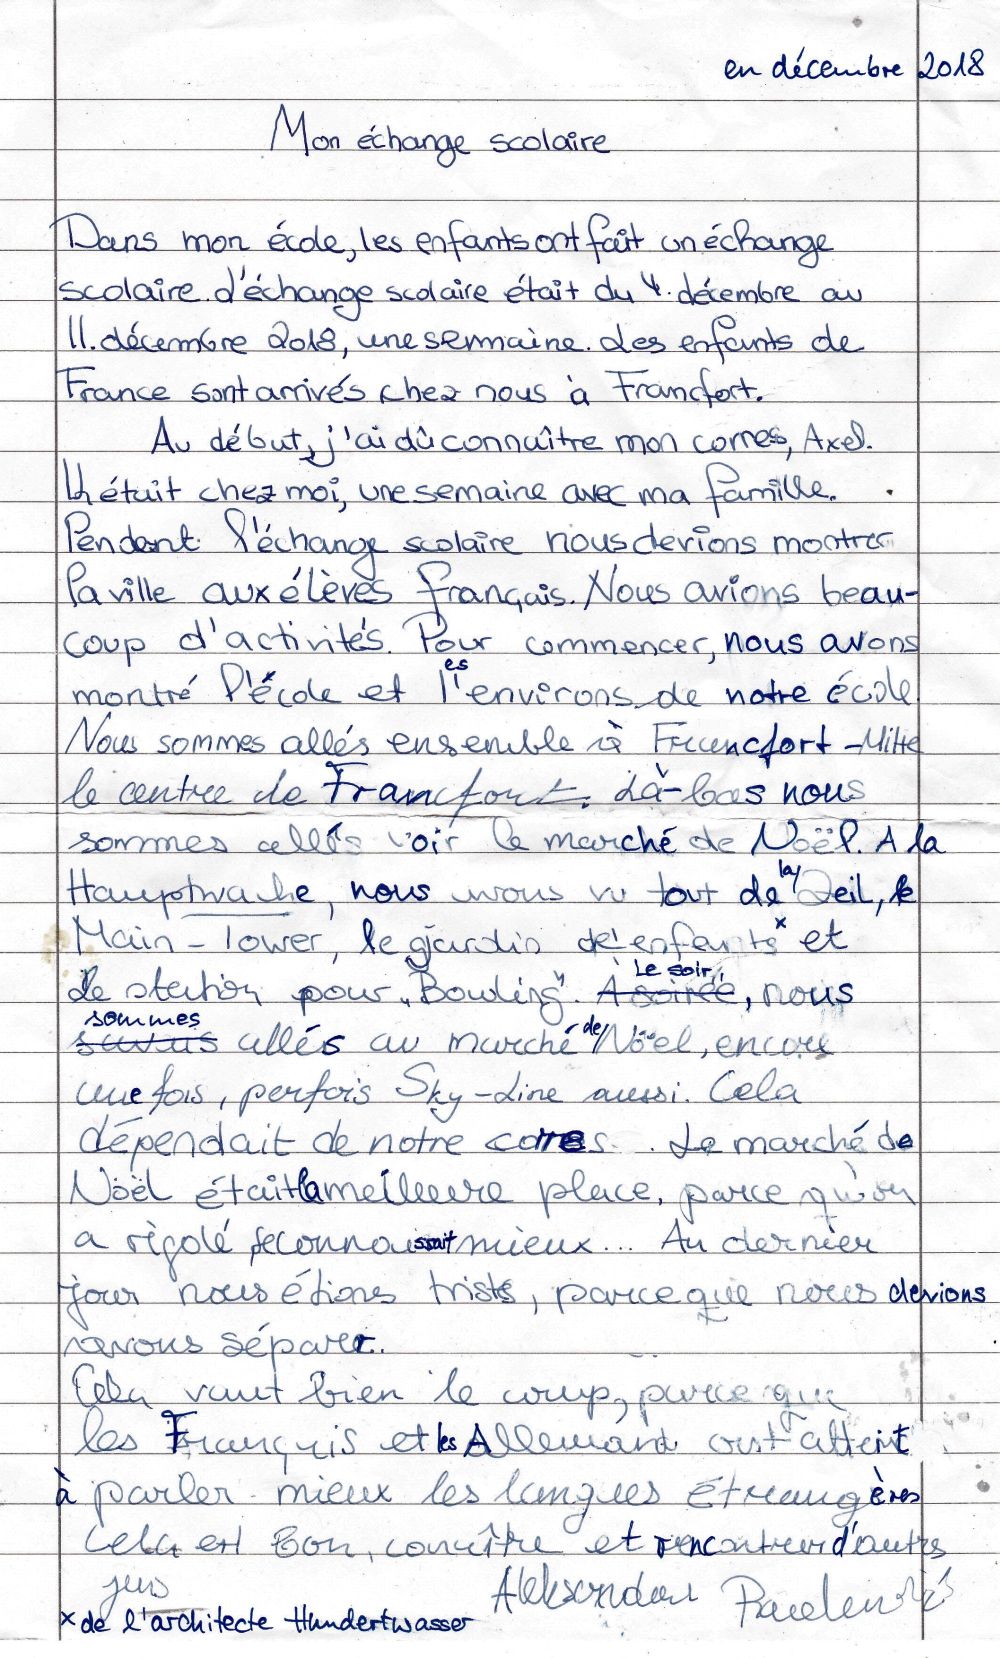 en décembre 2018
Mon échange scolaire
Dans mon école, les enfants ont fait un échange
scolaire. L'échange scolaire était du 4. décembre au
11. décembre 2018, une semaine. Les enfants de
France sont arrivés chez nous à Francfort.
Au début, j'ai dû connaître mon corres, Axel.
Il était chez moi, une semaine avec ma famille.
Pendant l'échange scolaire nous devions montrer
la ville aux élèves français. Nous avions beau-
coup d'activités. Pour commencer, nous avons
montré l'école et les environs de notre école.
Nous sommes allés ensemble à Francfort-Mitte
le centre de Francfort. Là-bas nous
sommes allés voir le marché de Noël. A la
Hauptwache, nous avons vu tout de la Zeil, le
Main-Tower, le jardin d'enfants x et
la station pour "Bowling". À soirée Le soir, nous
sommes allés au marché de Noël, encore
une fois, parfois Sky-Line aussi. Cela
dépendait de notre corres. Le marché de
Noël était la meilleure place, parce qu'on
a rigolé se connaissait mieux... Au dernier
jour nous étions tristes, parce que nous devions
nous séparer.
Cela vaut bien le coup, parce que
les Français et les Allemand ont atteint
à parler mieux les langues étrangères
Cela est bon, connaître et rencontrer d'autres
Aleksandar
x de l'architecte Hundertwasser